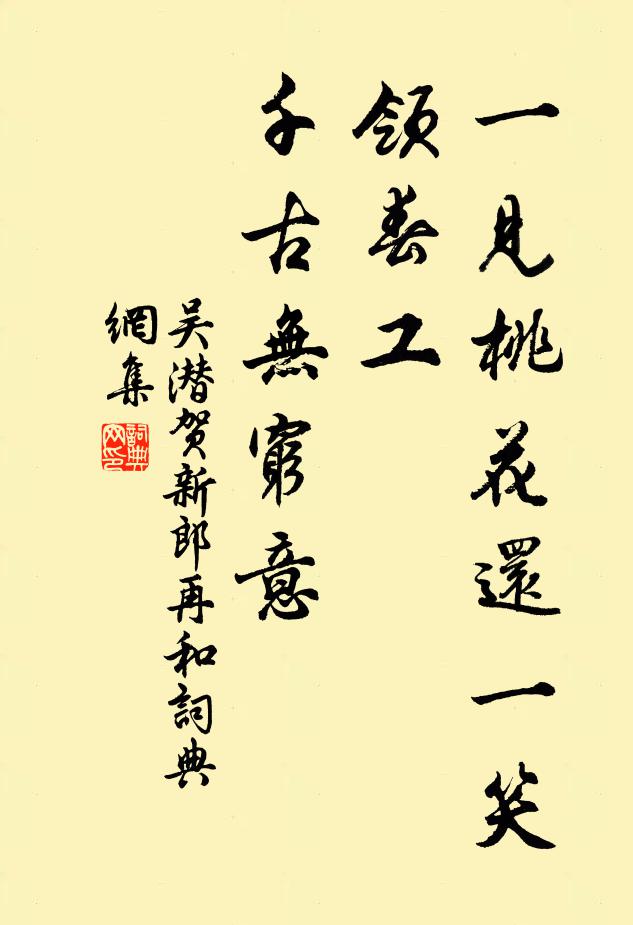 一見桃花還一笑
領春工
千古無窮意
吴潜贺新郎再和詞典
網集
詞典網印